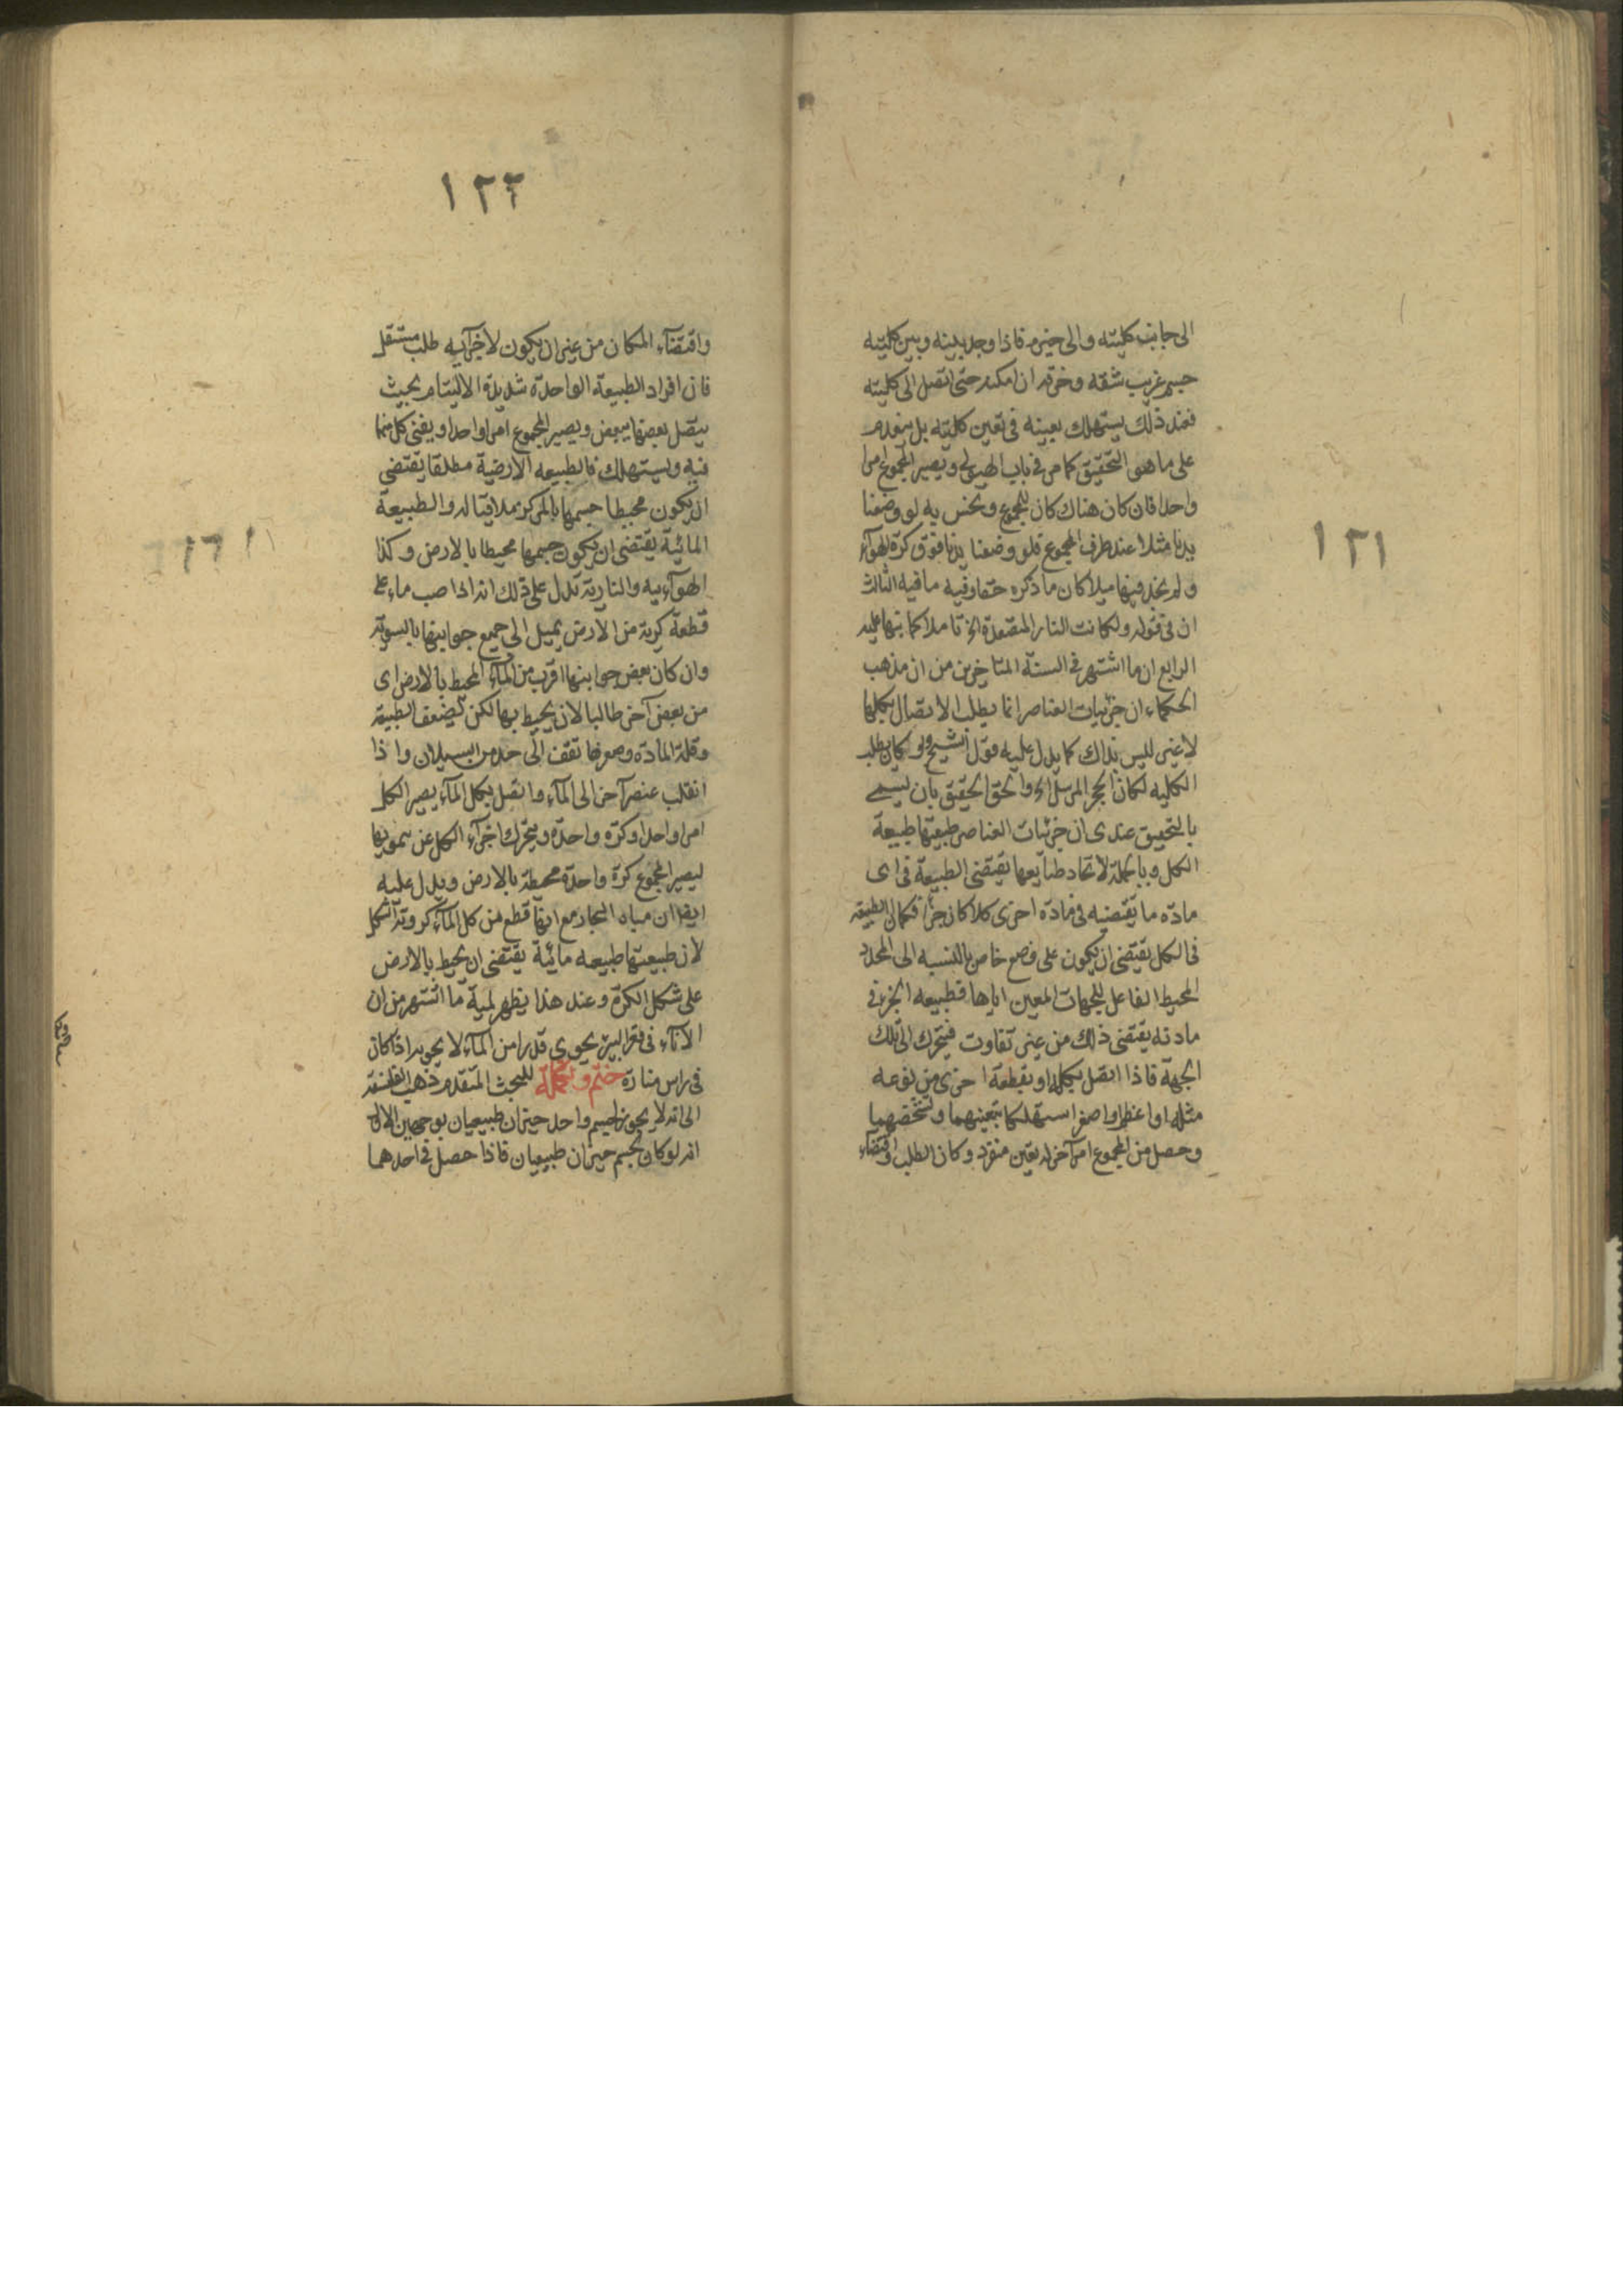 ١٢١
الى جانب كليته والى حيزه فاذا وجد بينه وبين كليته
جسم غريب شقه وخرقه ان امكنه حتى اتصل الى كليته
فعند ذلك يستهلك بعينه فى تعين كليته بل ينعدم
على ما هو التحقيق كما مر فى باب الهيولى ويصير المجموع امرا
واحدا فان كان هناك كان للمجموع ونحس به لو وضعنا
يدنا مثلا عند طرف المجموع فلو وضعنا يدنا فوق كرة الهوآء
ولم نجد فيها ميلا كان ما ذكره حقا وفيه ما فيه الثالث
ان فى قوله ولكانت النار المتصعدة الخ تاملا كما نبها عليه
الرابع ان ما اشتهر فى السنة المتاخرين من ان مذهب
الحكماء ان جزئيات العناصر انما يطلب الاتصال بكلها
لا غير ليس بذاك كما يدل عليه قول الشيخ ولو كان يطلب
الكليه لكان الحجر المرسل الخ والحق الحقيق بان يسمى
بالتحقيق عندى ان جزئيات العناصر طبيعتها طبيعة
الكل وبالجملة لاتحاد طبآيعها يقتضى الطبيعة فى اى
مادّه ما يقتضيه فى مادّه اخرى كلا كان جزأ فكما ان الطبيعة
فى الكل يقتضى ان يكون على وضع خاص بالنسبه الى المحدد
المحيط الفاعل للجهات المعين اياها فطبيعه الجزء فى
مادته يقتضى ذلك من غير تفاوت فيتحرك الى تلك
الجهة فاذا اتصل بكله او بقطعة اخرى من نوعه
مثله او اعظم او اصغر استهلكا بتعينهما وتشخصهما
وحصل من المجموع امر آخر له تعين منفرد وكان الطلب واقتضآء
١٢٢
واقتضآء المكان من غير ان يكون لاجزآيه طلب مستقل
فان افراد الطبيعة الواحدة شديدة الاليتام بحيث
يتصل بعضها ببعض ويصير المجموع امرا واحدا ويفنى كل منها
فيه ويستهلك فالطبيعه الارضية مطلقا يقتضى
ان يكون محيطا جسمها بالمركز ملاقيا له والطبيعة
المائية يقتضى ان يكون جسمها محيطا بالارض وكذا
الهوآءيه والنارية تدل على ذلك انه اذا صب ماء على
قطعة كرية من الارض يميل الى جميع جوابنها بالسوية
وان كان بعض جوابنها اقرب من المآء المحيط بالارض اى
من بعض آخر طالبا لان يحيط بها لكن لضعف الطبيعة
وقلة المادّه وصغرها تقف الى حد من السيلان واذا
انقلب عنصر آخر الى المآء واتصل بكل المآء يصير الكل
امرا واحدا وكرّه واحدّه ويتحرك اجزآء الكل عن سمويها
ليصير المجموع كرة واحدة محيطة بالارض ويدل عليه
ايضا ان مياه البحار مع انها قطع من كل المآء كروية الشكل
لان طبيعتها طبيعه مائية يقتضى ان يحيط بالارض
على شكل الكرة وعند هذا يظهر لمية ما اشتهر من ان
الانآء فى قعر البير يحوى قدرا من المآء لا يحويه اذا كان
فى راس منارة ختم وتكملة للبحث المتقدم ذهب الفلاسفة
الى انه لا يجوز لجسم واحد حيزان طبيعيان بوجهين الاول
انه لو كان لجسم حيزان طبيعيان فاذا حصل فى احدهما